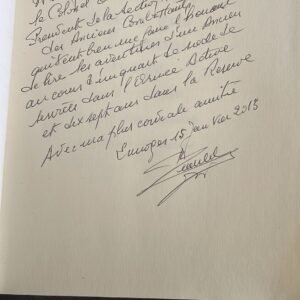 le Colonel
Président de la Section
des Anciens Combattants
qui a bien me faire l'honneur
de lire les aventures d'un Ancien
au cours d'un quart de siècle de
services dans l'Armée Active
et dix sept ans dans la Réserve
Avec ma plus cordiale amitié
Limoges 15 janvier 2013